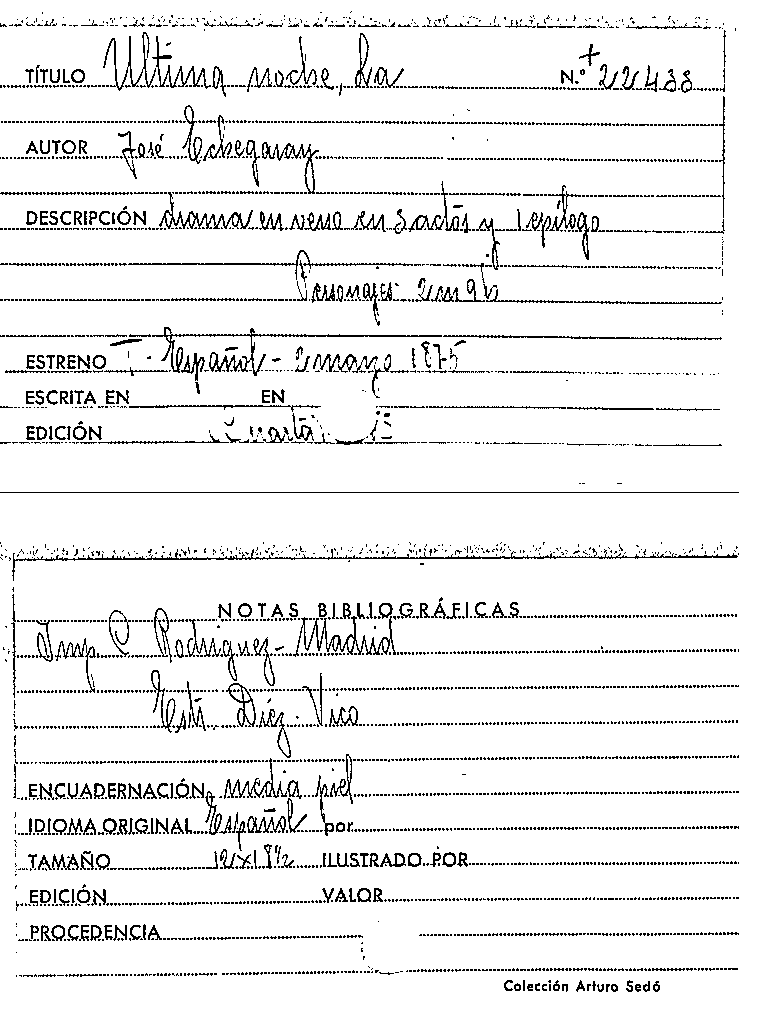 TÍTULO Ultima noche, La N.º + 22488
AUTOR José Echegaray
DESCRIPCIÓN drama en verso en 3 actos y 1 epílogo
Personajes 2m 9h
ESTRENO T. Español - 2 marzo 1875
ESCRITA EN EN
EDICIÓN Cuarta
NOTAS BIBLIOGRÁFICAS
Imp C Rodriguez - Madrid
Estr. Díez - Vico
ENCUADERNACIÓN media piel
IDIOMA ORIGINAL Español por
TAMAÑO 12x18½ ILUSTRADO POR
EDICIÓN VALOR
PROCEDENCIA
Colección Arturo Sedó